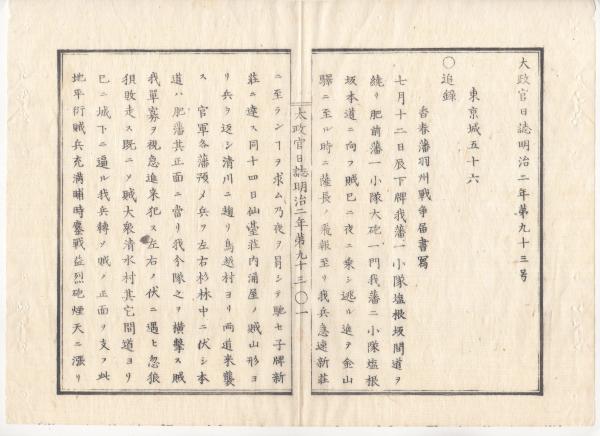 太政官日誌明治二年第九十三号
東京城五十六
〇追録
香春藩羽州戦争届書写
七月十二日辰下牌我藩一小隊塩根坂間道ヲ
繞リ肥前藩一小隊大砲一門我藩二小隊塩根
坂本道ニ向フ賊已ニ夜ニ乗シ逃ル進ヲ金山
驛ニ至ル時ニ薩長ノ飛報至リ我兵急速新荘
太政官日誌明治二年第九十三 〇一
ニ至ランヿヲ求ム乃夜ヲ冐シテ馳セ子牌新
荘ニ達ス同十四日仙臺荘内涌屋ノ賊山形ヨ
リ兵ヲ返シ清川ニ趨リ鳥越村ヨリ両道来襲
ス官軍各藩預メ兵ヲ左右杉林中ニ伏シ本
道ハ肥藩其正面ニ當リ我今隊之ヲ横撃ス賊
我單寡ヲ視急進来犯ス左右ノ伏ニ遇ヒ忽狼
狽敗走ス既ニノ賊大衆清水村其它間道ヨリ
已ニ城下ニ逼ル我兵轉シ賊ノ正面ヲ支フ此
地平衍賊兵充滿晡時鏖戦益烈砲煙天ニ漲リ